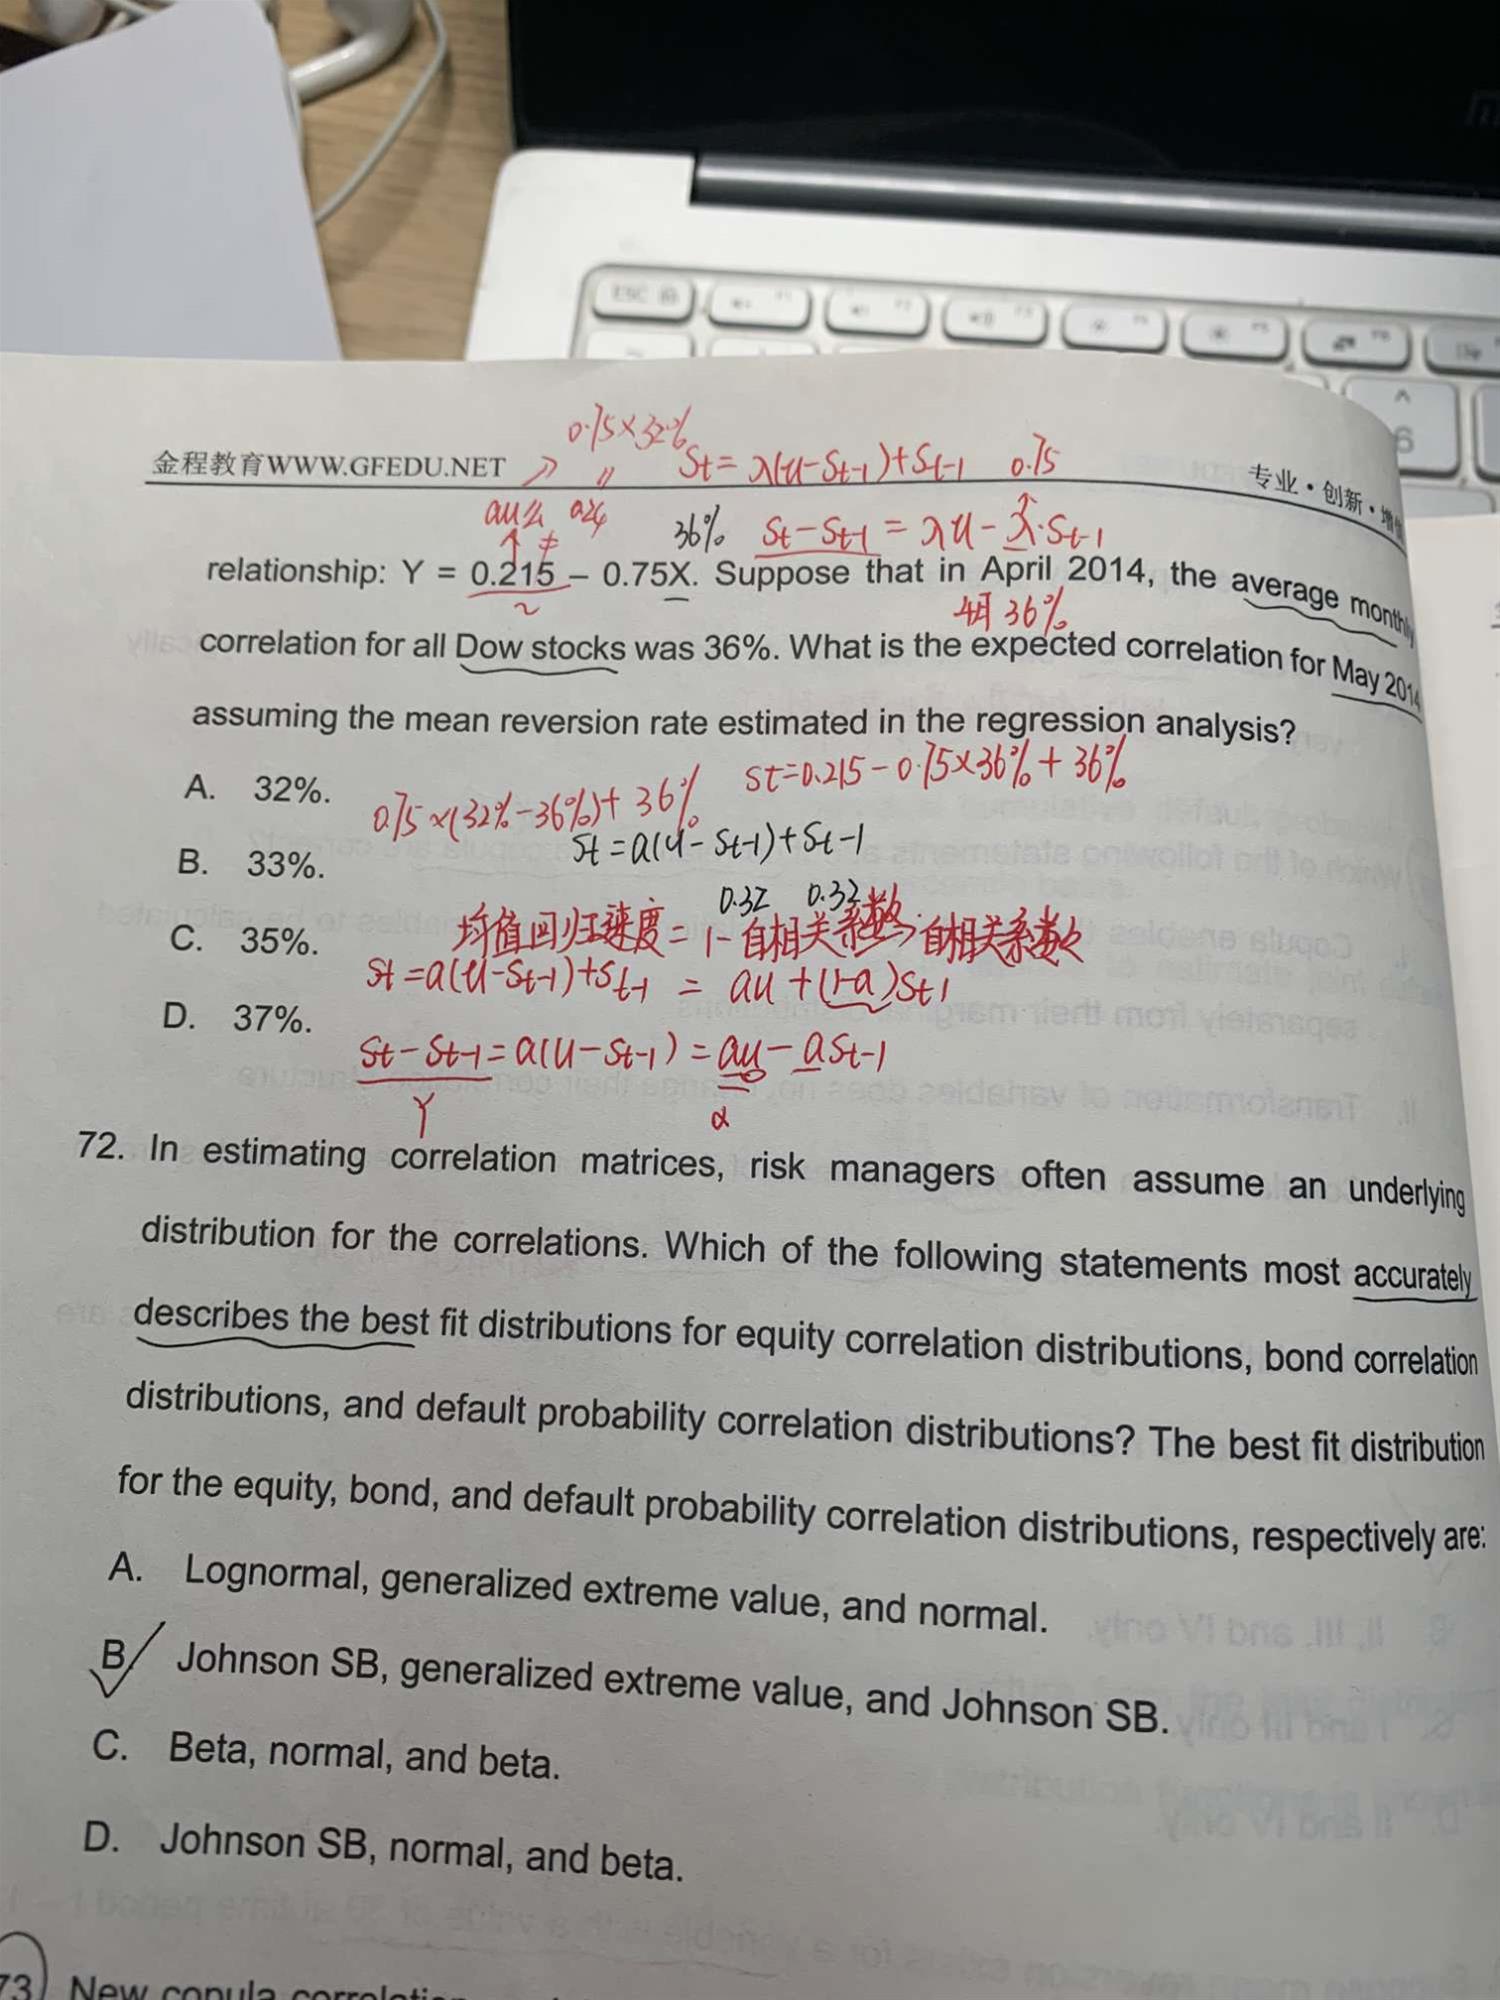 0.75×32%
金程教育WWW.GFEDU.NET St=λ(u-St-1)+St-1 0.75
专业·创新·增值
au 0.24 36% St-St-1=λu-λ·St-1
relationship: Y = 0.215 – 0.75X. Suppose that in April 2014, the average monthly
4月 36%
correlation for all Dow stocks was 36%. What is the expected correlation for May 2014
assuming the mean reversion rate estimated in the regression analysis?
St=0.215-0.75×36%+36%
A. 32%.
0.75×(32%-36%)+36%
St=a(u-St-1)+St-1
B. 33%.
0.32 0.33
均值回归速度=1-自相关系数→自相关系数
C. 35%.
St=a(u-St-1)+St-1 = au+(1-a)St-1
D. 37%.
St-St-1=a(u-St-1)=au-aSt-1
Y α
72. In estimating correlation matrices, risk managers often assume an underlying
distribution for the correlations. Which of the following statements most accurately
describes the best fit distributions for equity correlation distributions, bond correlation
distributions, and default probability correlation distributions? The best fit distribution
for the equity, bond, and default probability correlation distributions, respectively are:
A. Lognormal, generalized extreme value, and normal.
B Johnson SB, generalized extreme value, and Johnson SB.
C. Beta, normal, and beta.
D. Johnson SB, normal, and beta.
73 New copula